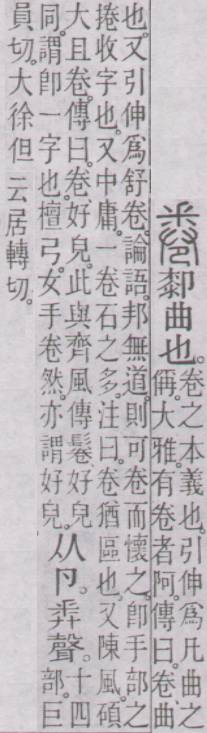 𢍏厀曲也。
卷之本義也。引伸爲凡曲之
偁。大雅。有卷者阿。傳曰。卷曲
也。又引伸爲舒卷。論語。邦無道則可卷而懷之。卽手部之
捲收字也。又中庸。一卷石之多。注曰。卷猶區也。又陳風。碩
大且卷。傳曰。卷好皃。此與齊風傳鬈好皃
同。謂卽一字也。檀弓。女手卷然。亦謂好皃。
从卪。𢍏聲。
十四
部。巨
員切。大徐但云居轉切。